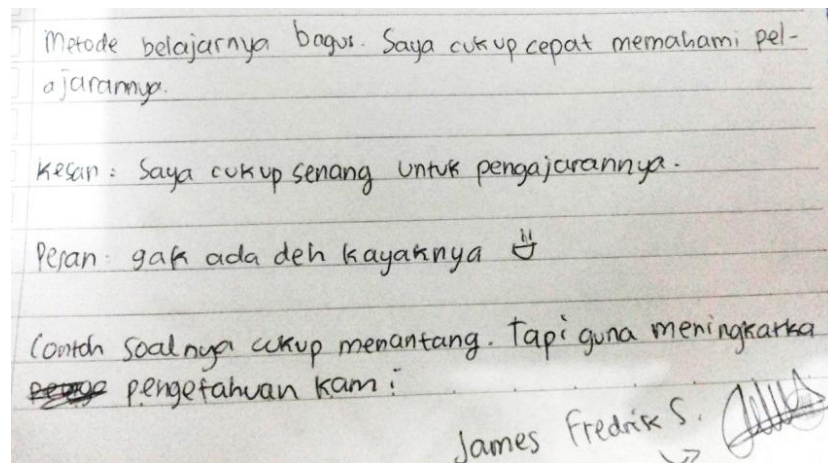 Metode belajarnya bagus. Saya cukup cepat memahami pel-
ajarannya.
Kesan : Saya cukup senang untuk pengajarannya.
Pesan : gak ada deh kayaknya
Contoh soalnya cukup menantang. Tapi guna meningkatka
pengetahuan kami
James Fredrik S.